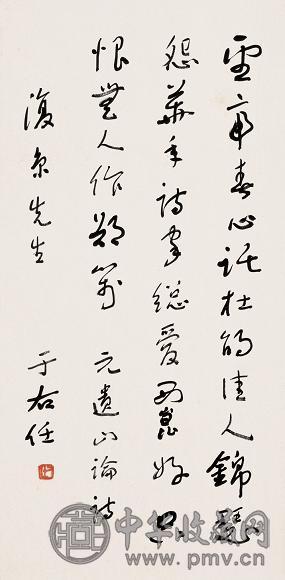 望帝春心託杜鵑佳人錦瑟
怨華年詩家總愛西崑好只
恨無人作鄭箋 元遺山論詩
復泉先生
于右任
中华收藏网
www.pmv.cn